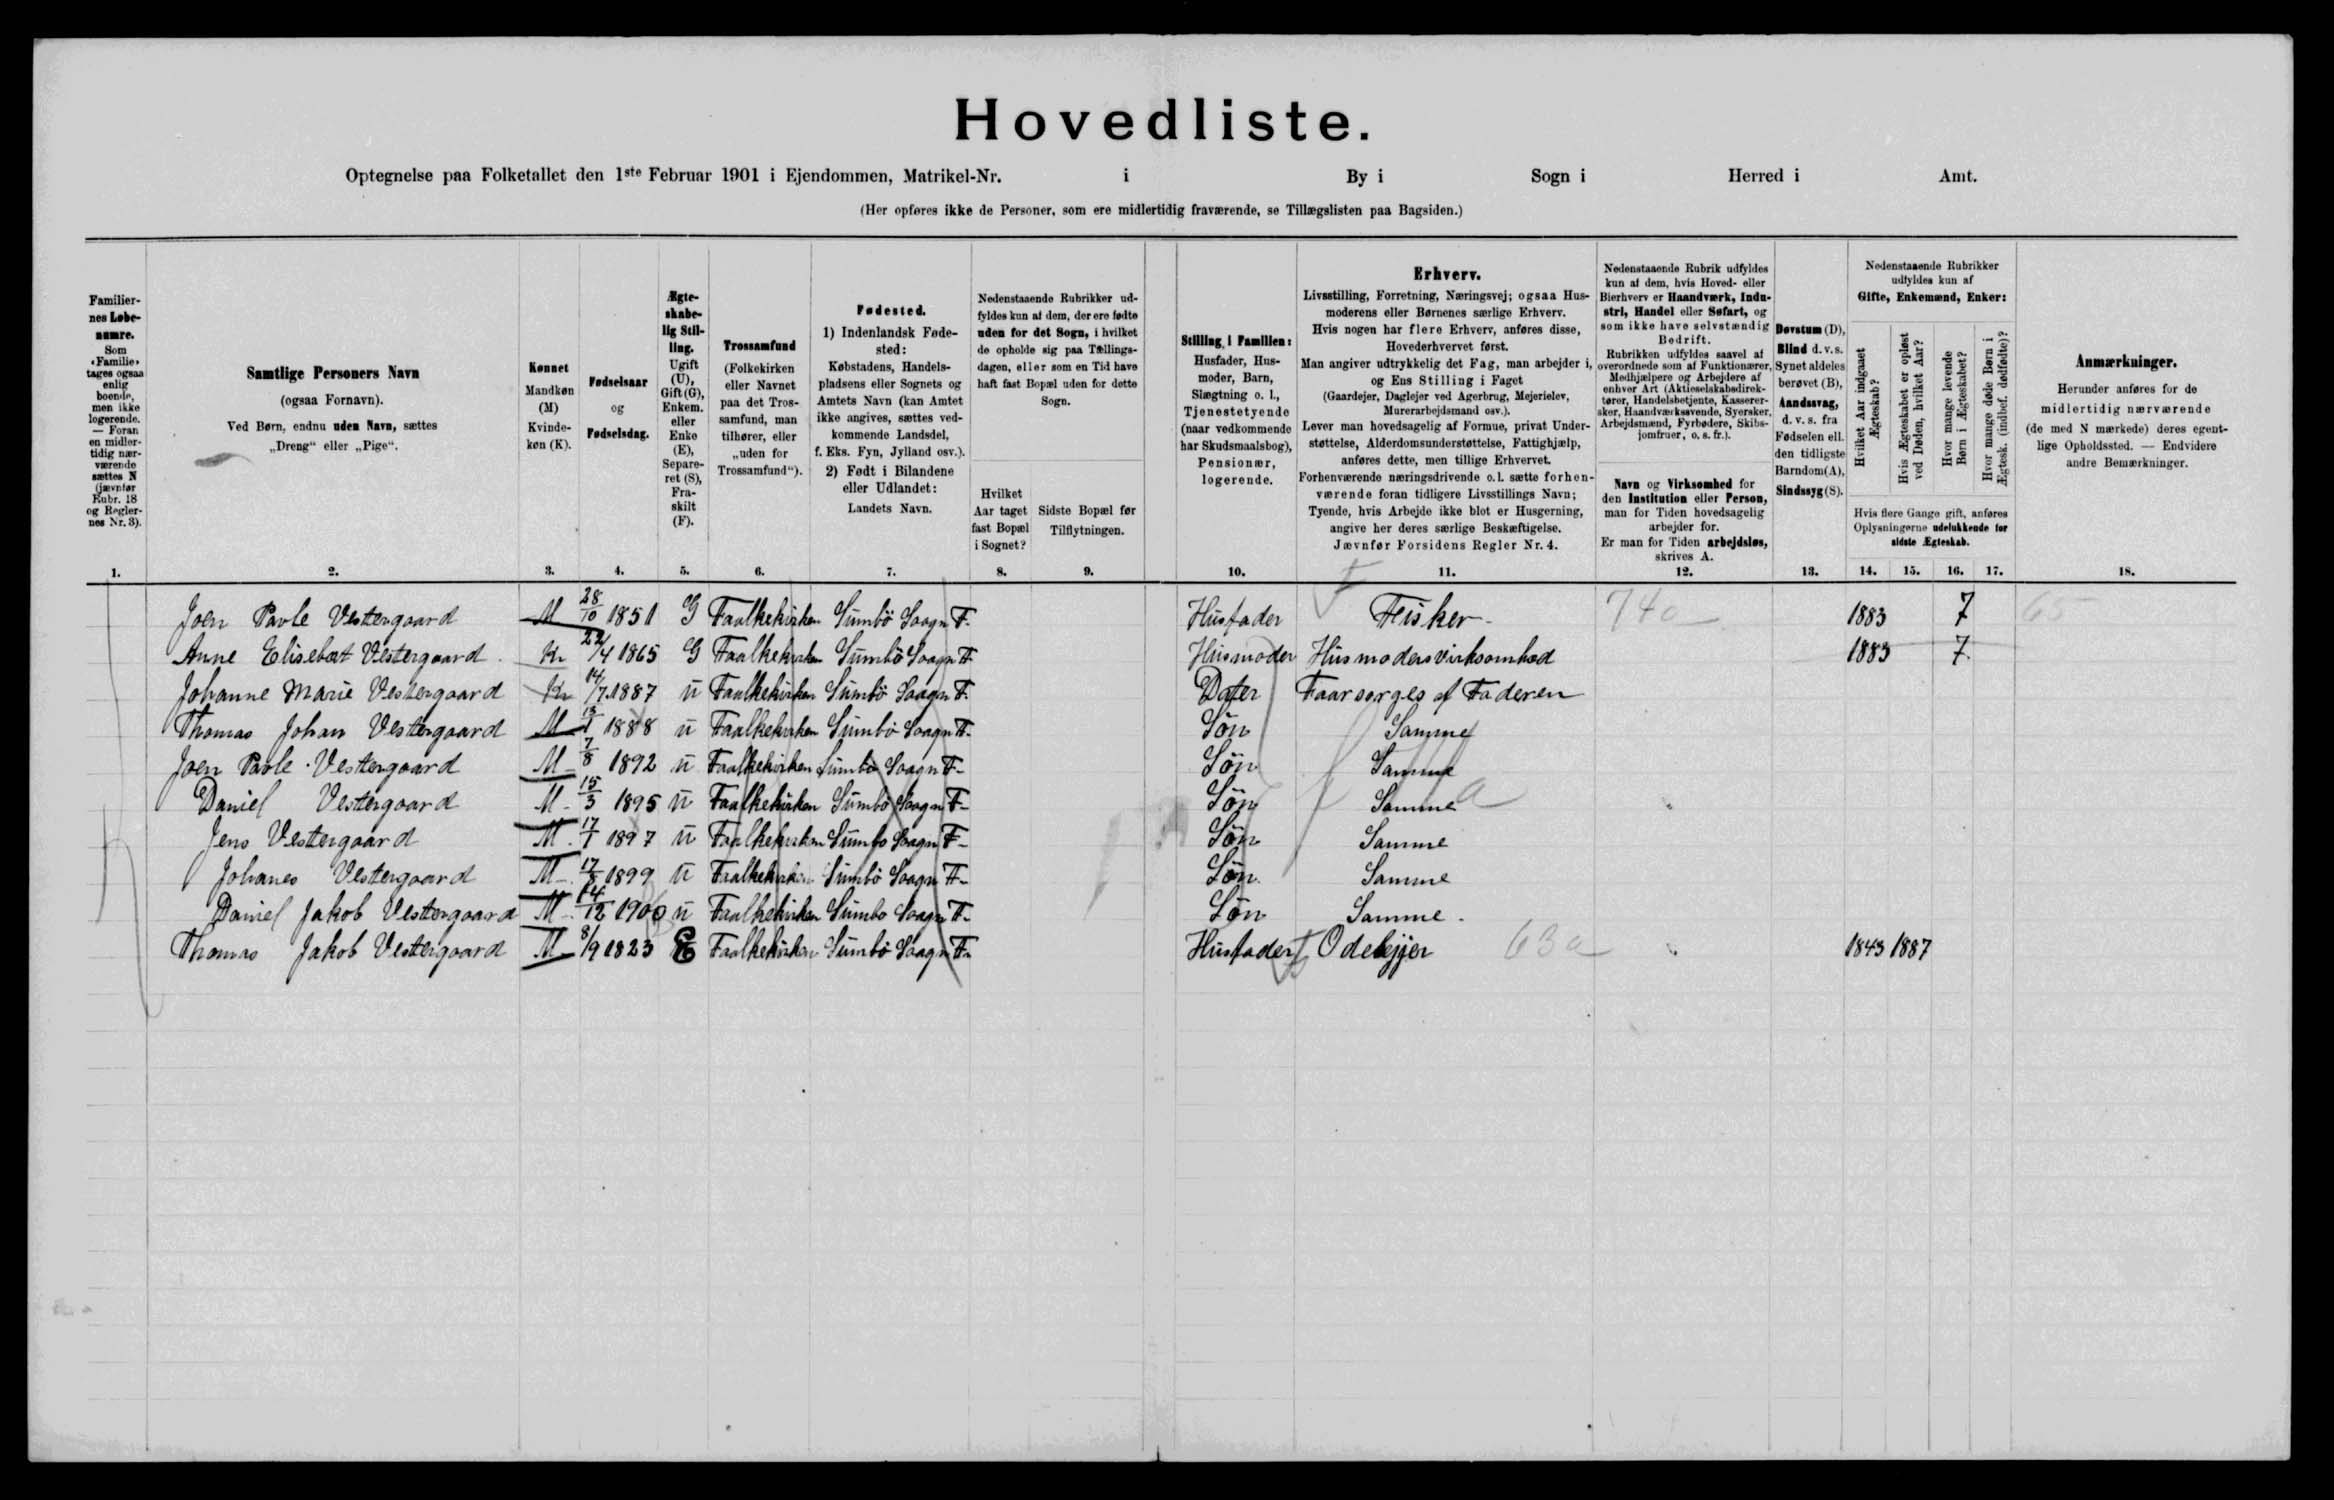 Hovedliste.
Optegnelse paa Folketallet den 1ste Februar 1901 i Ejendommen, Matrikel-Nr. i By i Sogn i Herred i Amt.
(Her opføres ikke de Personer, som ere midlertidig fraværende, se Tillægslisten paa Bagsiden.)
Familier-
nes Løbe-
numre.
Som
«Familie»
tages ogsaa
enlig
boende,
men ikke
logerende.
— Foran
en midler-
tidig nær-
værende
sættes N
(jævnfør
Rubr. 18
og Regler-
nes Nr. 3).
Samtlige Personers Navn
(ogsaa Fornavn).
Ved Børn, endnu uden Navn, sættes
„Dreng“ eller „Pige“.
Kønnet
Mandkøn
(M)
Kvinde-
køn (K).
Fødselsaar
og
Fødselsdag.
Ægte-
skabe-
lig Stil-
ling.
Ugift
(U),
Gift (G),
Enkem.
eller
Enke
(E),
Separe-
ret (S),
Fra-
skilt
(F).
Trossamfund
(Folkekirken
eller Navnet
paa det Tros-
samfund, man
tilhører, eller
„uden for
Trossamfund“).
Fødested.
1) Indenlandsk Føde-
sted:
Købstadens, Handels-
pladsens eller Sognets og
Amtets Navn (kan Amtet
ikke angives, sættes ved-
kommende Landsdel,
f. Eks. Fyn, Jylland osv.).
2) Født i Bilandene
eller Udlandet:
Landets Navn.
Nedenstaaende Rubrikker ud-
fyldes kun af dem, der ere fødte
uden for det Sogn, i hvilket
de opholde sig paa Tællings-
dagen, eller som en Tid have
haft fast Bopæl uden for dette
Sogn.
Hvilket
Aar taget
fast Bopæl
i Sognet?
Sidste Bopæl før
Tilflytningen.
Stilling i Familien:
Husfader, Hus-
moder, Barn,
Slægtning o. l.,
Tjenestetyende
(naar vedkommende
har Skudsmaalsbog),
Pensionær,
logerende.
Erhverv.
Livsstilling, Forretning, Næringsvej; ogsaa Hus-
moderens eller Børnenes særlige Erhverv.
Hvis nogen har flere Erhverv, anføres disse,
Hovederhvervet først.
Man angiver udtrykkelig det Fag, man arbejder i,
og Ens Stilling i Faget
(Gaardejer, Daglejer ved Agerbrug, Mejerielev,
Murerarbejdsmand osv.).
Lever man hovedsagelig af Formue, privat Under-
støttelse, Alderdomsunderstøttelse, Fattighjælp,
anføres dette, men tillige Erhvervet.
Forhenværende næringsdrivende o. l. sætte forhen-
værende foran tidligere Livsstillings Navn;
Tyende, hvis Arbejde ikke blot er Husgerning,
angive her deres særlige Beskæftigelse.
Jævnfør Forsidens Regler Nr. 4.
Nedenstaaende Rubrik udfyldes
kun af dem, hvis Hoved- eller
Bierhverv er Haandværk, Indu-
stri, Handel eller Søfart, og
som ikke have selvstændig
Bedrift.
Rubrikken udfyldes saavel af
overordnede som af Funktionærer,
Medhjælpere og Arbejdere af
enhver Art (Aktieselskabsdirek-
tører, Handelsbetjente, Kasserer-
sker, Haandværkssvende, Syersker,
Arbejdsmænd, Fyrbødere, Skibs-
jomfruer, o. s. fr.).
Navn og Virksomhed for
den Institution eller Person,
man for Tiden hovedsagelig
arbejder for.
Er man for Tiden arbejdsløs,
skrives A.
Døvstum (D),
Blind d. v. s.
Synet aldeles
berøvet (B),
Aandssvag,
d. v. s. fra
Fødselen ell.
den tidligste
Barndom (A),
Sindssyg (S).
Nedenstaaende Rubrikker
udfyldes kun af
Gifte, Enkemænd, Enker:
Hvilket Aar indgaaet
Ægteskab?
Hvis Ægteskabet er opløst
ved Døden, hvilket Aar?
Hvor mange levende
Børn i Ægteskabet?
Hvor mange døde Børn i
Ægtesk. (indbef. dødfødte)?
Hvis flere Gange gift, anføres
Oplysningerne udelukkende for
sidste Ægteskab.
Anmærkninger.
Herunder anføres for de
midlertidig nærværende
(de med N mærkede) deres egent-
lige Opholdssted. — Endvidere
andre Bemærkninger.
1. 2. 3. 4. 5. 6. 7. 8. 9. 10. 11. 12. 13. 14. 15. 16. 17. 18.
Joen Pavle Vestergaard M 28/10 1851 G Faalkekirken Sumbö Saagn F. Husfader Fisker 740 1883 7 65
Anne Elisebæt Vestergaard Kv 22/4 1865 G Faalkekirken Sumbö Saagn F Husmoder Husmodersvirksomhed 1883 7.
Johanne Marie Vestergaard Kv 14/7 1887 u Faalkekirken Sumbö Saagn F. Dater Faarsorges af Faderen
Thomas Johan Vestergaard M 1888 u Faalkekirken Sumbö Saagn F. Sön Samme
Joen Pavle Vestergaard M 7/8 1892 u Faalkekirken Sumbö Saagn F Sön Samme
Daniel Vestergaard M 15/3 1895 u Faalkekirken Sumbö Saagn F Sön Samme
Jens Vestergaard M 17/1 1897 u Faalkekirken Sumbö Saagn F Sön Samme
Johanes Vestergaard M 1899 u Faalkekirken Sumbö Saagn F Sön Samme
Daniel Jakob Vestergaard M 14/12 1900 u Faalkekirken Sumbö Saagn F. Sön Samme.
Thomas Jakob Vestergaard M 8/9 1823 E Faalkekirken Sumbö Saagn F. Husfader Odelejjer 63a 1843 1887